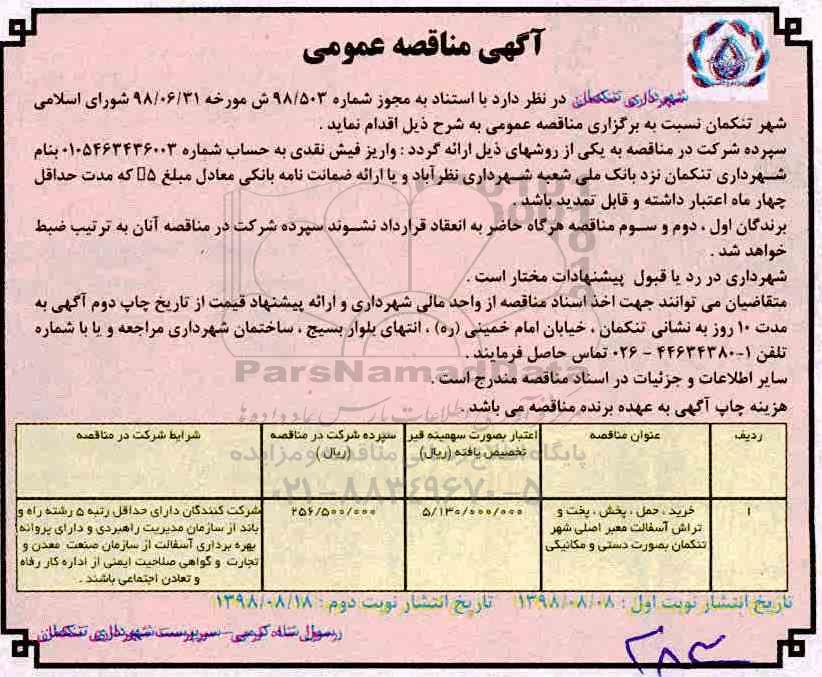 آگهی مناقصه عمومی
شهرداری تنکمان در نظر دارد با استناد به مجوز شماره ۹۸/۵۰۳ ش مورخه ۹۸/۰۶/۳۱ شورای اسلامی
شهر تنکمان نسبت به برگزاری مناقصه عمومی به شرح ذیل اقدام نماید .
سپرده شرکت در مناقصه به یکی از روشهای ذیل ارائه گردد : واریز فیش نقدی به حساب شماره ۰۱۰۵۴۶۳۴۳۶۰۰۳ بنام
شهرداری تنکمان نزد بانک ملی شعبه شهرداری نظرآباد و یا ارائه ضمانت نامه بانکی معادل مبلغ ۵ که مدت حداقل
چهار ماه اعتبار داشته و قابل تمدید باشد .
برندگان اول ، دوم و سوم مناقصه هرگاه حاضر به انعقاد قرارداد نشوند سپرده شرکت در مناقصه آنان به ترتیب ضبط
خواهد شد .
شهرداری در رد یا قبول پیشنهادات مختار است .
متقاضیان می توانند جهت اخذ اسناد مناقصه از واحد مالی شهرداری و ارائه پیشنهاد قیمت از تاریخ چاپ دوم آگهی به
مدت ۱۰ روز به نشانی تنکمان ، خیابان امام خمینی (ره) ، انتهای بلوار بسیج ، ساختمان شهرداری مراجعه و یا با شماره
تلفن ۱-۴۴۶۳۴۳۸۰ - ۰۲۶ تماس حاصل فرمایند .
سایر اطلاعات و جزئیات در اسناد مناقصه مندرج است .
هزینه چاپ آگهی به عهده برنده مناقصه می باشد .
ParsNamadData
پایگاه اطلاع رسانی مناقصه و مزایده
۰۲۱-۸۸۳۴۹۶۷۰-۵
ردیف
عنوان مناقصه
اعتبار بصورت سهمینه قیر
تخصیص یافته (ریال)
سپرده شرکت در مناقصه
(ریال)
شرایط شرکت در مناقصه
۱
خرید ، حمل ، پخش ، پخت و
تراش آسفالت معبر اصلی شهر
تنکمان بصورت دستی و مکانیکی
۵/۱۳۰/۰۰۰/۰۰۰
۲۵۶/۵۰۰/۰۰۰
شرکت کنندگان دارای حداقل رتبه ۵ رشته راه و
باند از سازمان مدیریت راهبردی و دارای پروانه
بهره برداری آسفالت از سازمان صنعت معدن و
تجارت و گواهی صلاحیت ایمنی از اداره کار رفاه
و تعادن اجتماعی باشند .
تاریخ انتشار نوبت اول : ۱۳۹۸/۰۸/۰۸ تاریخ انتشار نوبت دوم : ۱۳۹۸/۰۸/۱۸
رسول شاه کرمی - سرپرست شهرداری تنکمان